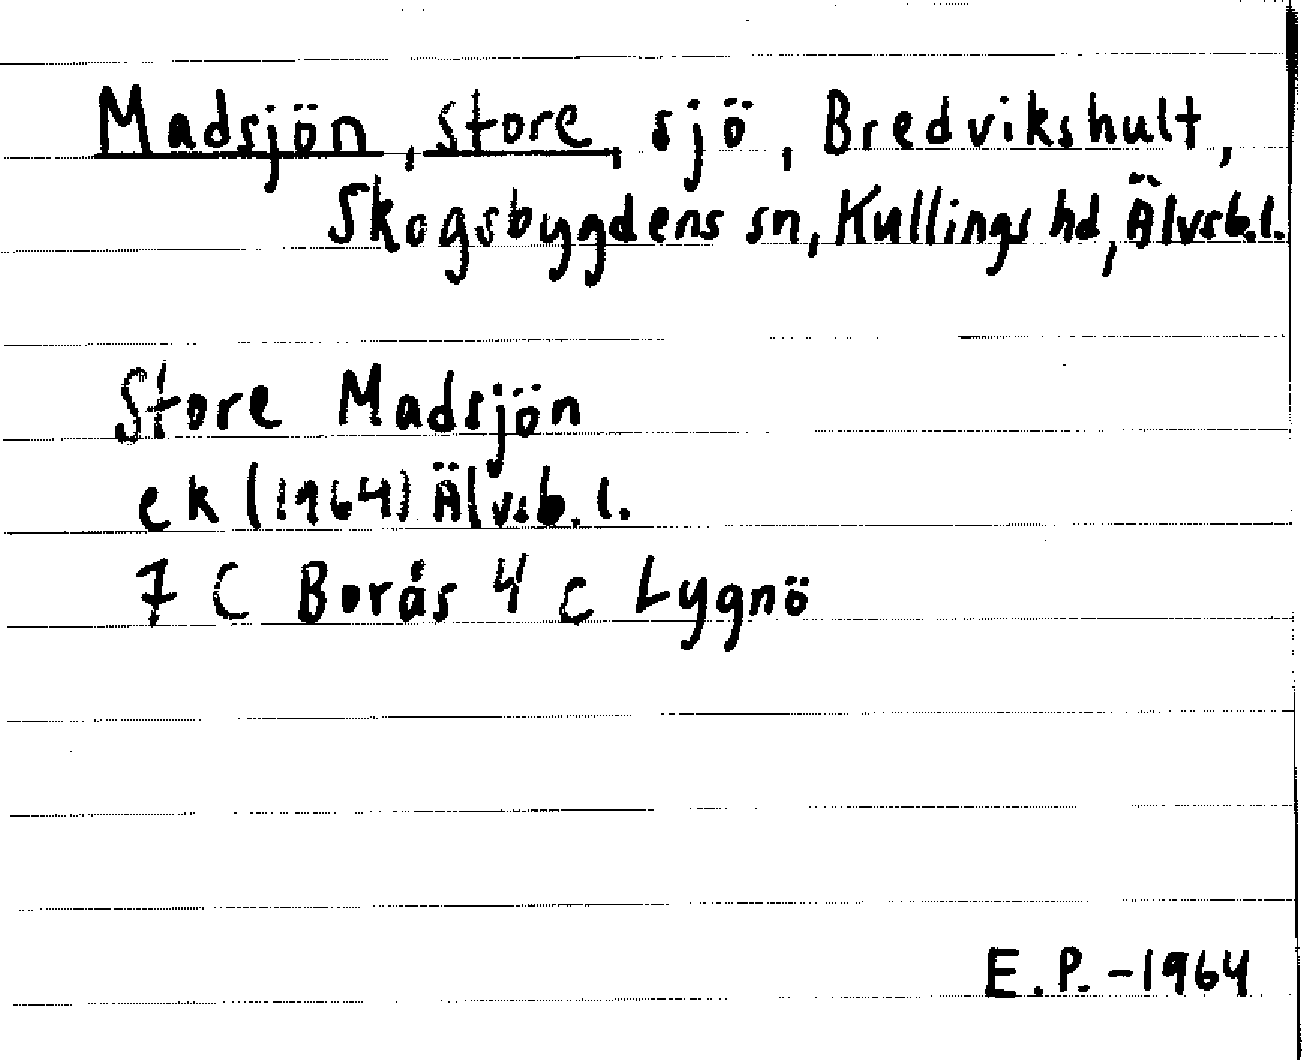 Madsjön, store, sjö, Bredvikshult,
Skogsbygdens sn, Kullings hd, Älvsb.l.
Store Madsjön
ek (1964) Älvsb.l.
7 C Borås 4 c Lygnö
E.P. -1964